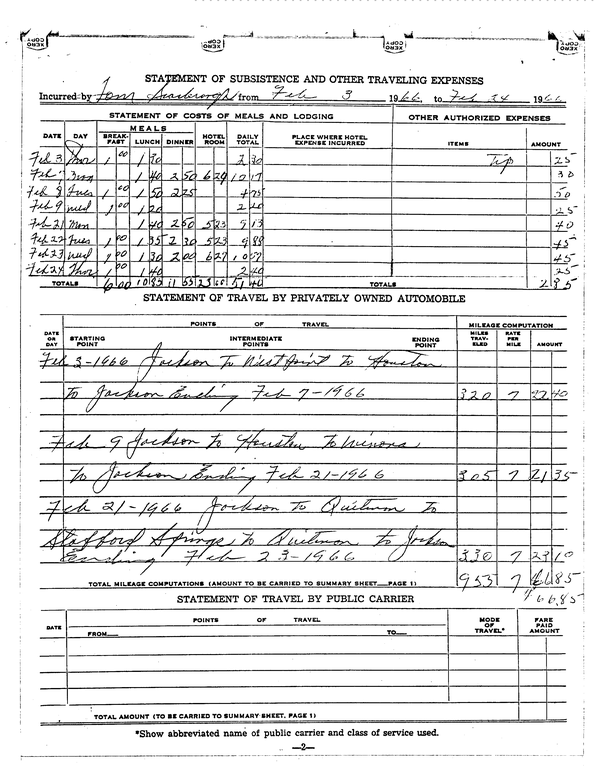 XERO COPY XERO COPY XERO COPY XERO COPY
STATEMENT OF SUBSISTENCE AND OTHER TRAVELING EXPENSES
Incurred by Tom Scarbrough from Feb 3 1966, to Feb 24 1966
STATEMENT OF COSTS OF MEALS AND LODGING OTHER AUTHORIZED EXPENSES
DATE DAY MEALS BREAK-FAST LUNCH DINNER HOTEL ROOM DAILY TOTAL PLACE WHERE HOTEL EXPENSE INCURRED ITEMS AMOUNT
Feb 3 Thur 1 00 1 30 2 30 Tip 25
Feb 7 1 40 2 50 6 27 10 17 30
Feb 8 Tues 1 00 1 50 2 25 4 75 50
Feb 9 Wed 1 00 1 20 2 20 25
Feb 21 Mon 1 40 2 50 5 23 9 13 40
Feb 22 Tues 1 00 1 35 2 30 5 23 9 88 45
Feb 23 Wed 1 00 1 30 2 00 6 27 10 57 45
Feb 24 Thur 1 00 1 40 2 40 25
TOTALS 6 00 10 85 11 55 23 00 51 40 TOTALS 2 85
STATEMENT OF TRAVEL BY PRIVATELY OWNED AUTOMOBILE
DATE OR DAY POINTS OF TRAVEL MILEAGE COMPUTATION
STARTING POINT INTERMEDIATE POINTS ENDING POINT MILES TRAV-ELED RATE PER MILE AMOUNT
Feb 3-1966 Jackson To West Point to Houston
to Jackson Ending Feb 7-1966 320 7 22 40
Feb 9 Jackson to Houston To Winona
to Jackson Ending Feb 21-1966 305 7 21 35
Feb 21-1966 Jackson to Quitman to
Stafford Springs to Quitman to Jackson
Ending Feb 23-1966 330 7 23 10
TOTAL MILEAGE COMPUTATIONS (AMOUNT TO BE CARRIED TO SUMMARY SHEET—PAGE 1) 953 7 66 85
66.85
STATEMENT OF TRAVEL BY PUBLIC CARRIER
DATE POINTS OF TRAVEL MODE OF TRAVEL* FARE PAID AMOUNT
FROM TO
TOTAL AMOUNT (TO BE CARRIED TO SUMMARY SHEET, PAGE 1)
*Show abbreviated name of public carrier and class of service used.
—2—